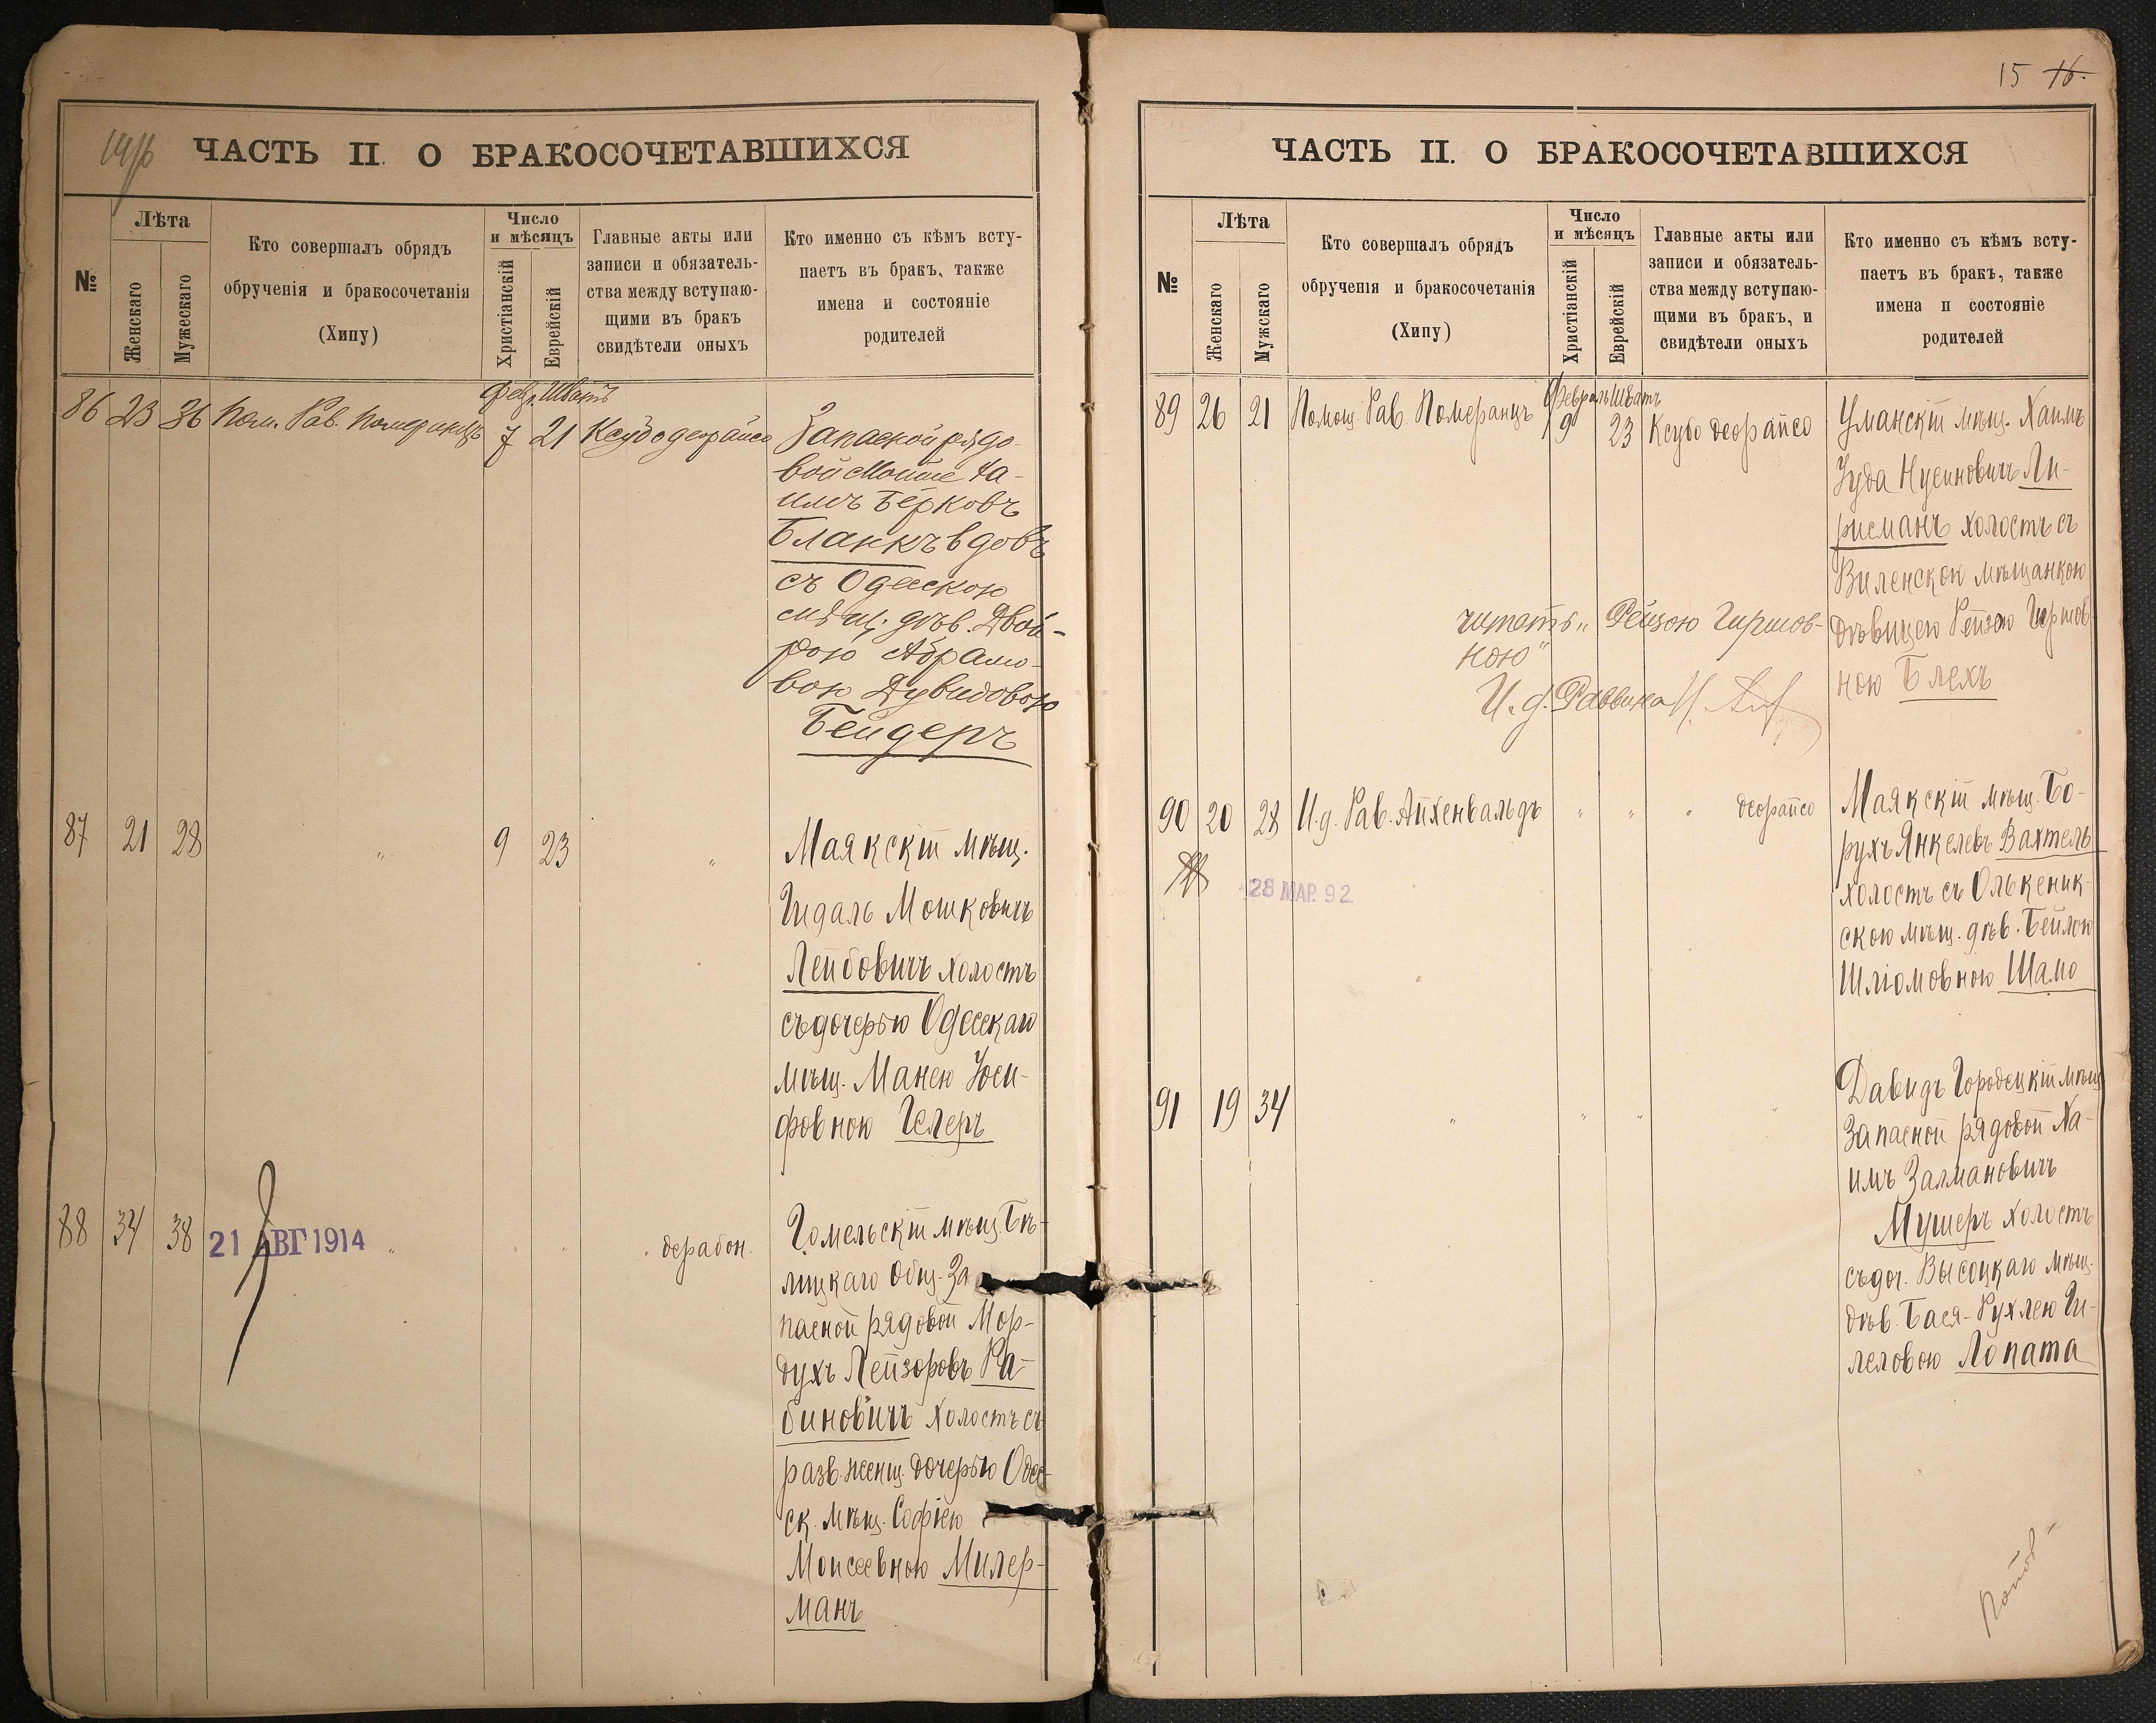 ЧАСТЬ II. О БРАКОСОЧЕТАВШИХСЯ
№
Лѣта
Женскаго
Мужескаго
Кто совершалъ обрядъ
обрученія и бракосочетанія
(Хипу)
Число
и мѣсяцъ
Христіанскій
Еврейскій
Главные акты или
записи и обязатель-
ства между вступаю-
щими въ бракъ
свидѣтели оныхъ
Кто именно съ кѣмъ всту-
паетъ въ бракъ, также
имена и состояніе
родителей
Февр. Шватъ
86 23 36 Пом. Рав. Померанцъ 7 21 Ксубо деорайсо
Запасной рядо-
вой Мойше Ха-
имъ Берковъ
Бланкъ вдовъ
съ Одесскою
мѣщ. дѣв. Двой-
рою Абрамо-
вою Дувидовою
Бендеръ
87 21 28 " 9 23 "
Маякскій мѣщ.
Гидаль Мошковичъ
Лейбовичъ холостъ
съ дочерью Одесскаго
мѣщ. Манею Іоси-
фовною Гелеръ
88 34 38 21 АВГ 1914 " " " " дерабон.
Гомельскій мѣщ. Бѣ-
лицкаго Общ. За
пасной рядовой Мор-
духъ Лейзоровъ Ра-
биновичъ холостъ съ
разв. женщ. дочерью Одес-
ск. мѣщ. Софіею
Моисеевною Милер-
манъ
15 16.
ЧАСТЬ II. О БРАКОСОЧЕТАВШИХСЯ
№
Лѣта
Женскаго
Мужскаго
Кто совершалъ обрядъ
обрученія и бракосочетанія
(Хипу)
Число
и мѣсяцъ
Христіанскій
Еврейскій
Главные акты или
записи и обязатель-
ства между вступаю-
щими въ бракъ, и
свидѣтели оныхъ
Кто именно съ кѣмъ всту-
паетъ въ бракъ, также
имена и состояніе
родителей
Февраль Шватъ
89 26 21 Помощ. Рав. Померанцъ 9 23 Ксубо деорайсо
Уманскій мѣщ. Хаимъ
Іуда Нусиновичъ Ли-
рисманъ холостъ съ
Виленскою мѣщанкою
дѣвицею Рейзею Гершов
ною Блехъ
читать „Рейзою Гиршов-
ною"
И. д. Раввина
90 20 28 И.д. Рав. Айхенвальдъ " " " деорайсо
28 МАР. 92.
Маякскій мѣщ. Бо-
рухъ Янкелевъ Вахтель
холостъ съ Олькеник-
скою мѣщ. дѣв. Бейлою
Шліомовною Шамо
91 19 34 " " " "
Давидъ Городецкій мѣщ
Запасной рядовой Ха-
имъ Залмановичъ
Мушеръ холостъ
съ доч. Высоцкаго мѣщ.
дѣв. Бася-Рухлею Ги-
леловою Лопата